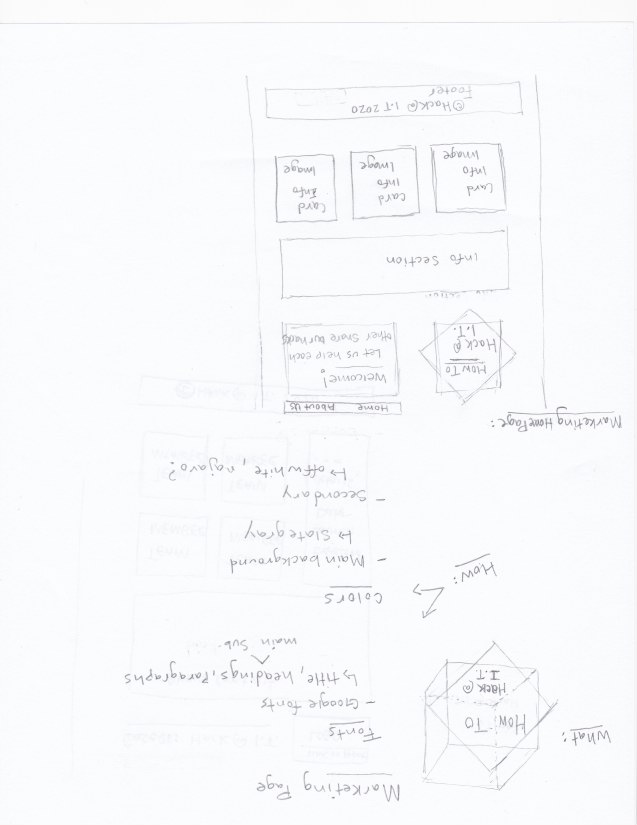 Marketing Page
What:
How TO
Hack@
I.T
Fonts
- Google fonts
↳ title, headings, Paragraphs
main Sub.
How:
Colors
- Main background
↳ Slate gray
- Secondary
↳ offwhite,
Marketing Home Page:
Home About us
How To
Hack@
I.T.
Welcome!
Let us help each
other share our hacks
Info Section
Card
Info
Image
Card
Info
Image
Card
Info
Image
©Hack@ I.T 2020
Footer